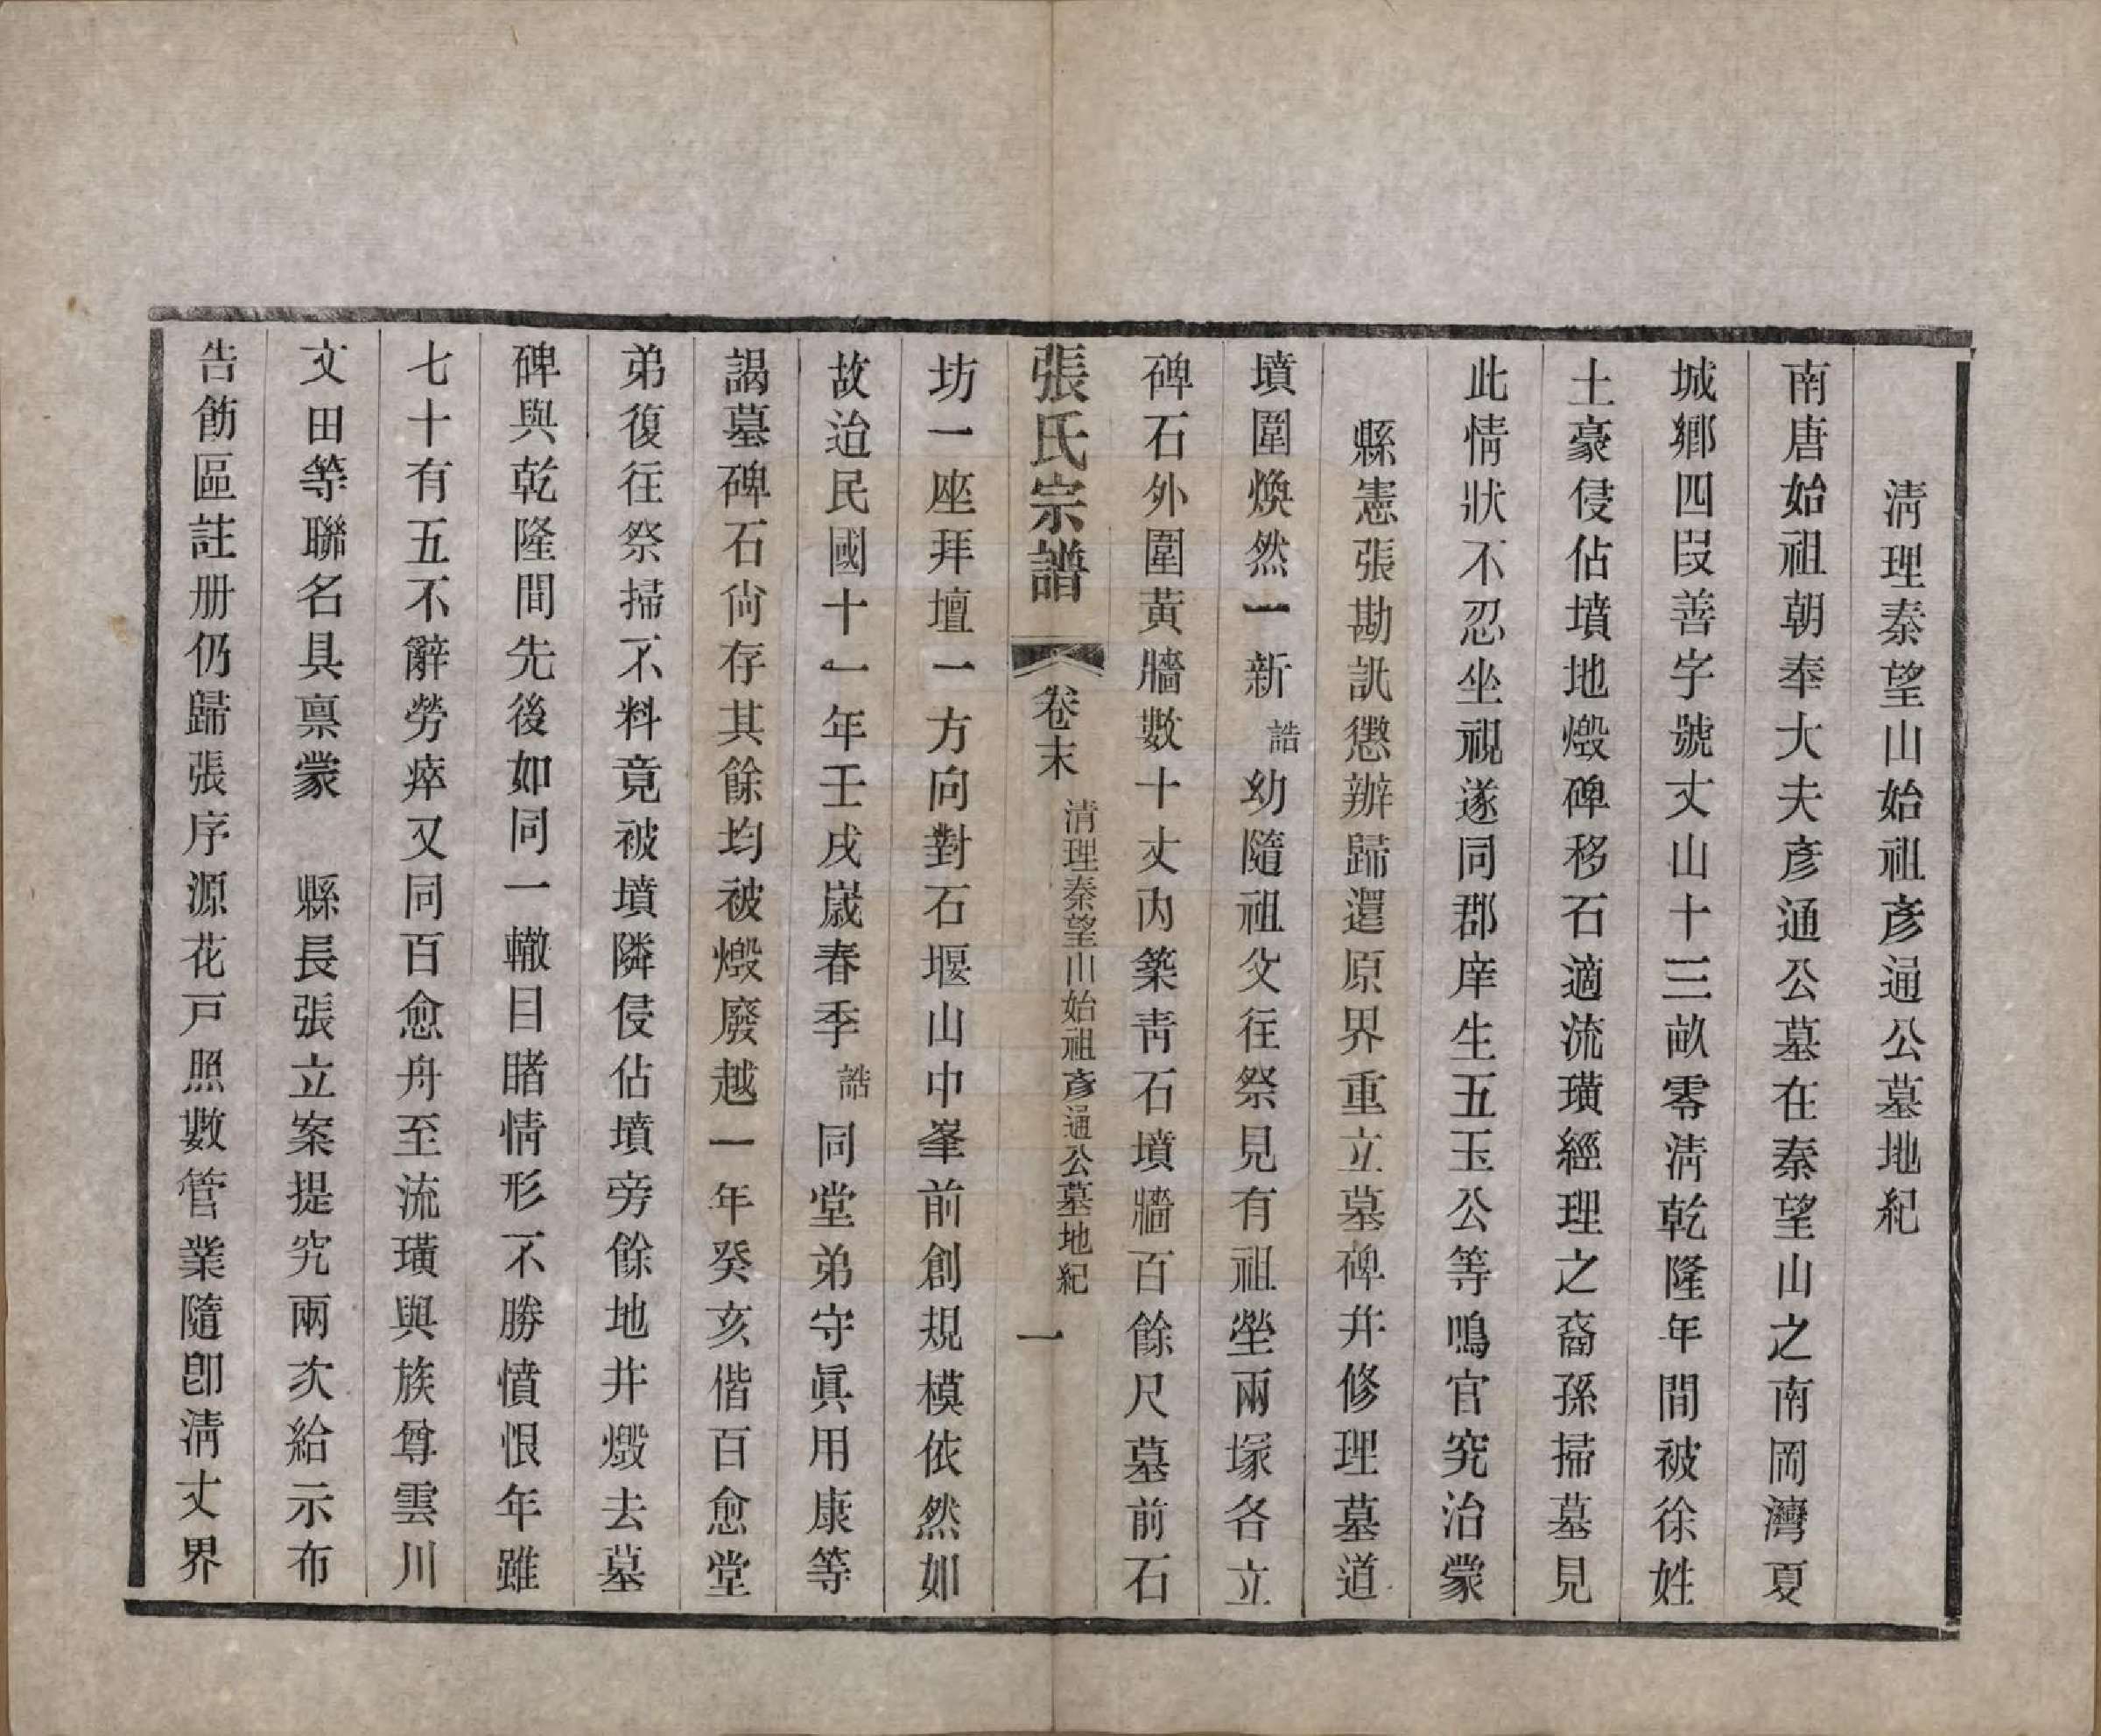 淸理秦望山始祖彥通公墓地紀
南唐始祖朝奉大夫彥通公墓在秦望山之南岡灣夏
城鄕四叚善字號丈山十三畝零淸乾隆年間被徐姓
土豪侵佔墳地燬碑移石適流璜經理之裔孫掃墓見
此情狀不忍坐視遂同郡庠生五玉公等鳴官究治蒙
縣憲張勘訊懲辦歸還原界重立墓碑幷修理墓道
墳圍煥然一新誥幼隨祖父往祭見有祖塋兩塚各立
碑石外圍黃牆數十丈內築靑石墳牆百餘尺墓前石
張氏宗譜 卷末 淸理秦望山始祖彥通公墓地紀 一
坊一座拜壇一方向對石堰山中峯前創規模依然如
故迨民國十一年壬戌嵗春季誥同堂弟守眞用康等
謁墓碑石尙存其餘均被燬廢越一年癸亥偕百愈堂
弟復往祭掃不料竟被墳隣侵佔墳旁餘地井燬去墓
碑與乾隆間先後如同一轍目睹情形不勝憤恨年雖
七十有五不辭勞瘁又同百愈舟至流璜與族尊雲川
文田等聯名具禀蒙 縣長張立案提究兩次給示布
告飭區註册仍歸張序源花戸照數管業隨卽淸丈界